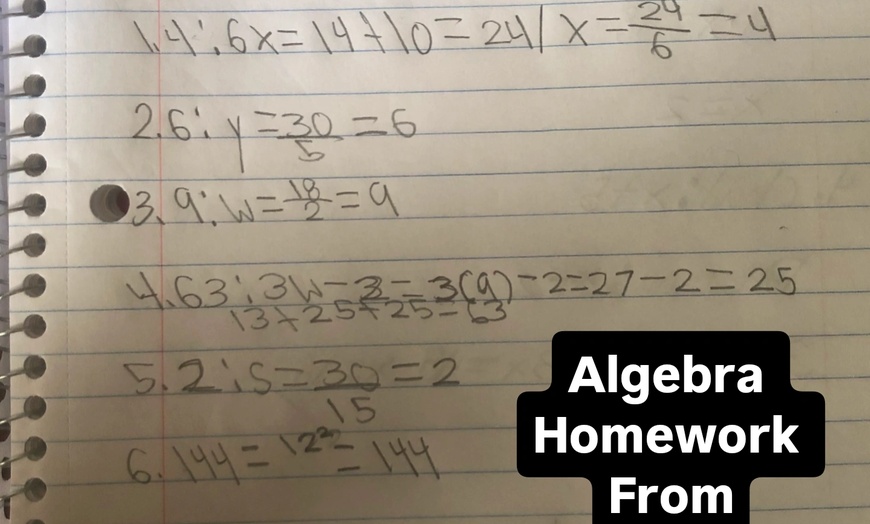 1. 4: 6x = 14 + 10 = 24 / x = 24/6 = 4
2. 6: y = 30/5 = 6
3. 9: W = 18/2 = 9
4. 63: 3W - 3 = 3(9) - 2 = 27 - 2 = 25
13 + 25 + 25 = 63
5. 2: S = 30/15 = 2
6. 144 = 12² = 144
Algebra
Homework
From